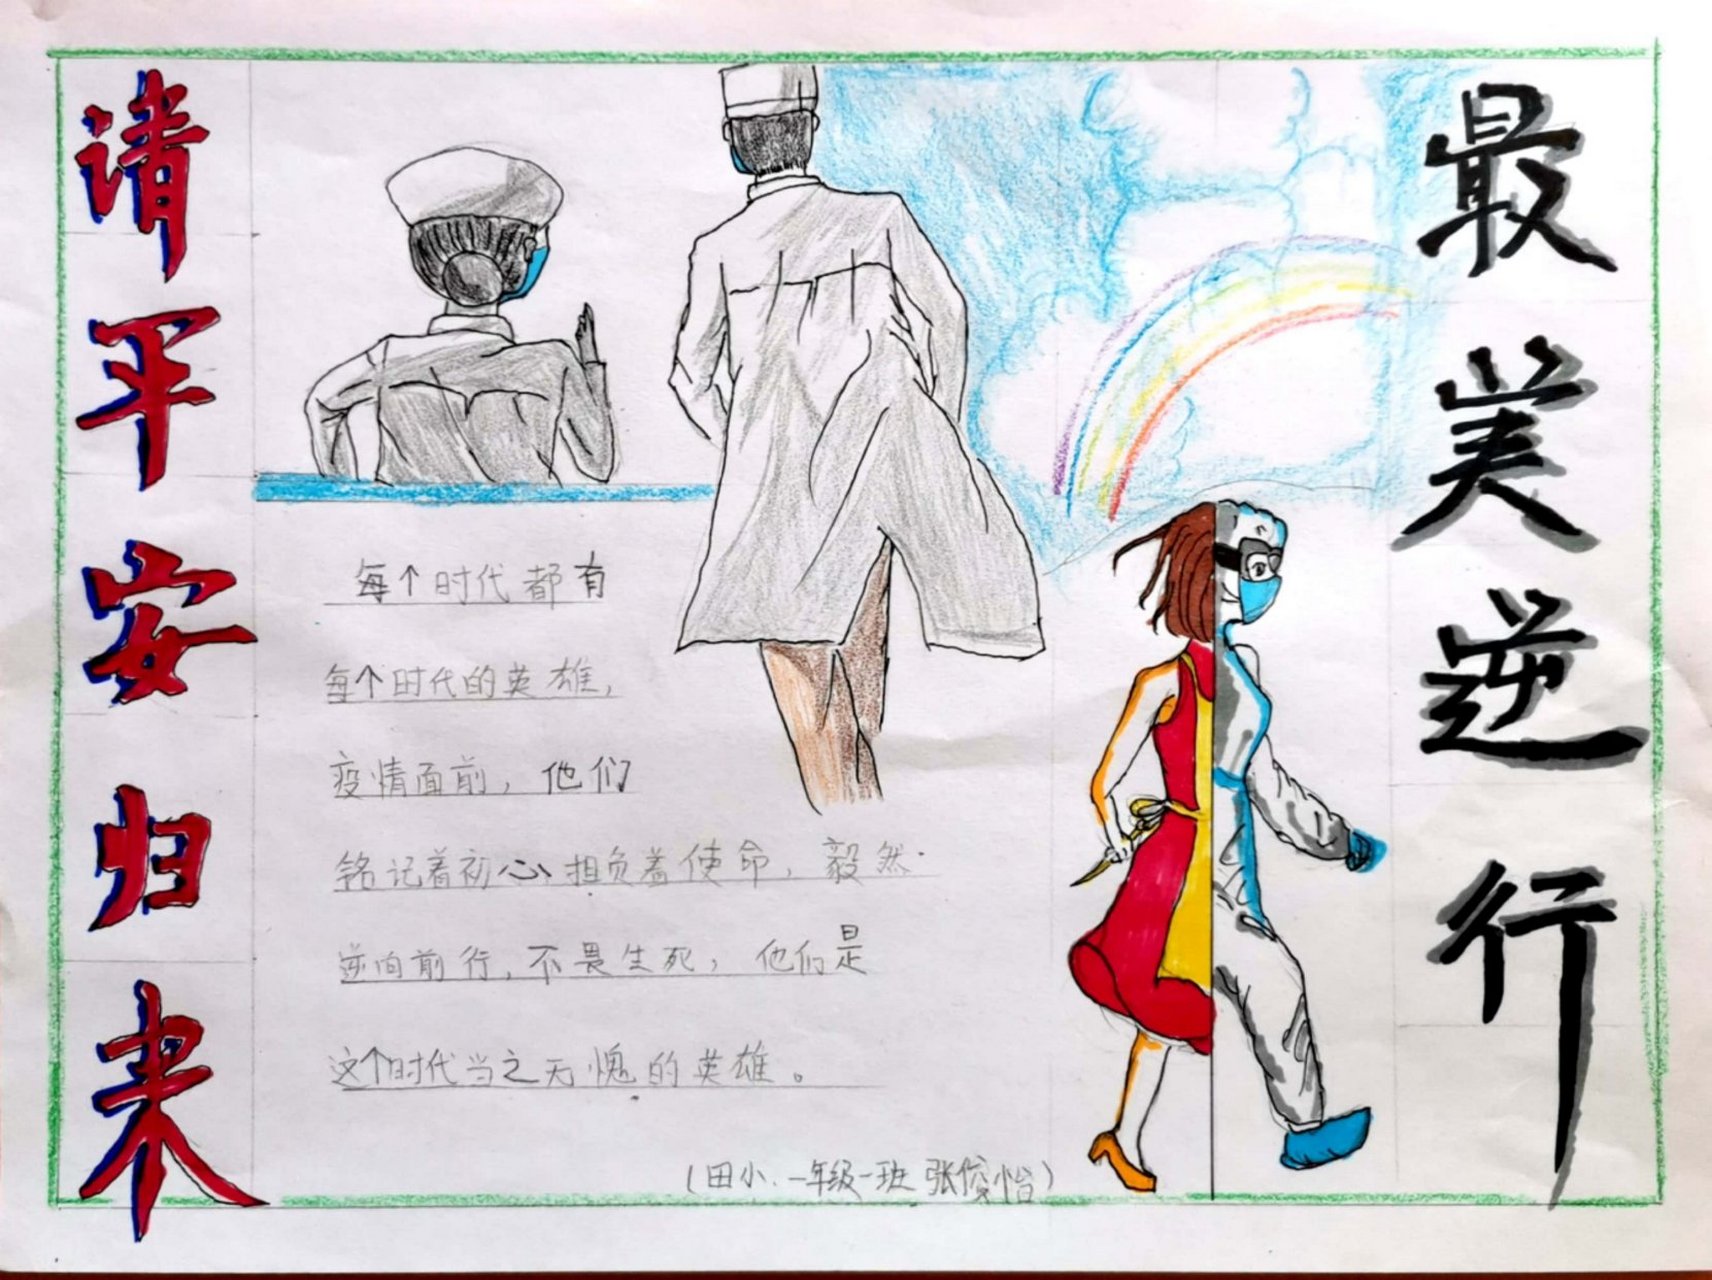 最美逆行
请平安归来
每个时代都有
每个时代的英雄，
疫情面前，他们
铭记着初心、担负着使命，毅然
逆向前行，不畏生死，他们是
这个时代当之无愧的英雄。
（田小.一年级一班 张俊怡）